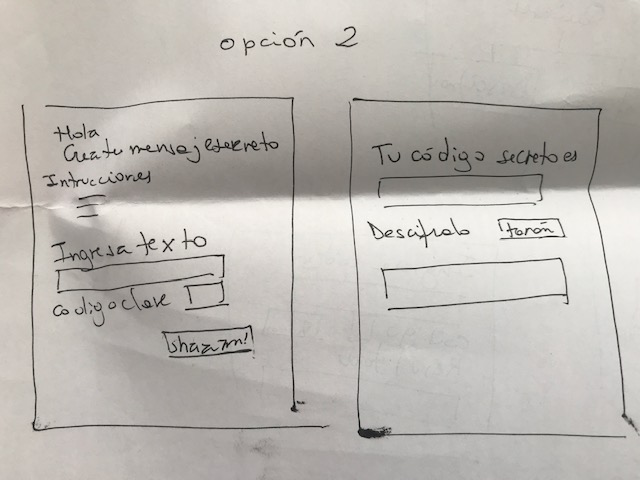 opción 2
Hola
Crea tu mensaje secreto
Intrucciones
Ingresa texto
codigo clave
shazam!
Tu código secreto es
Descifralo
taran